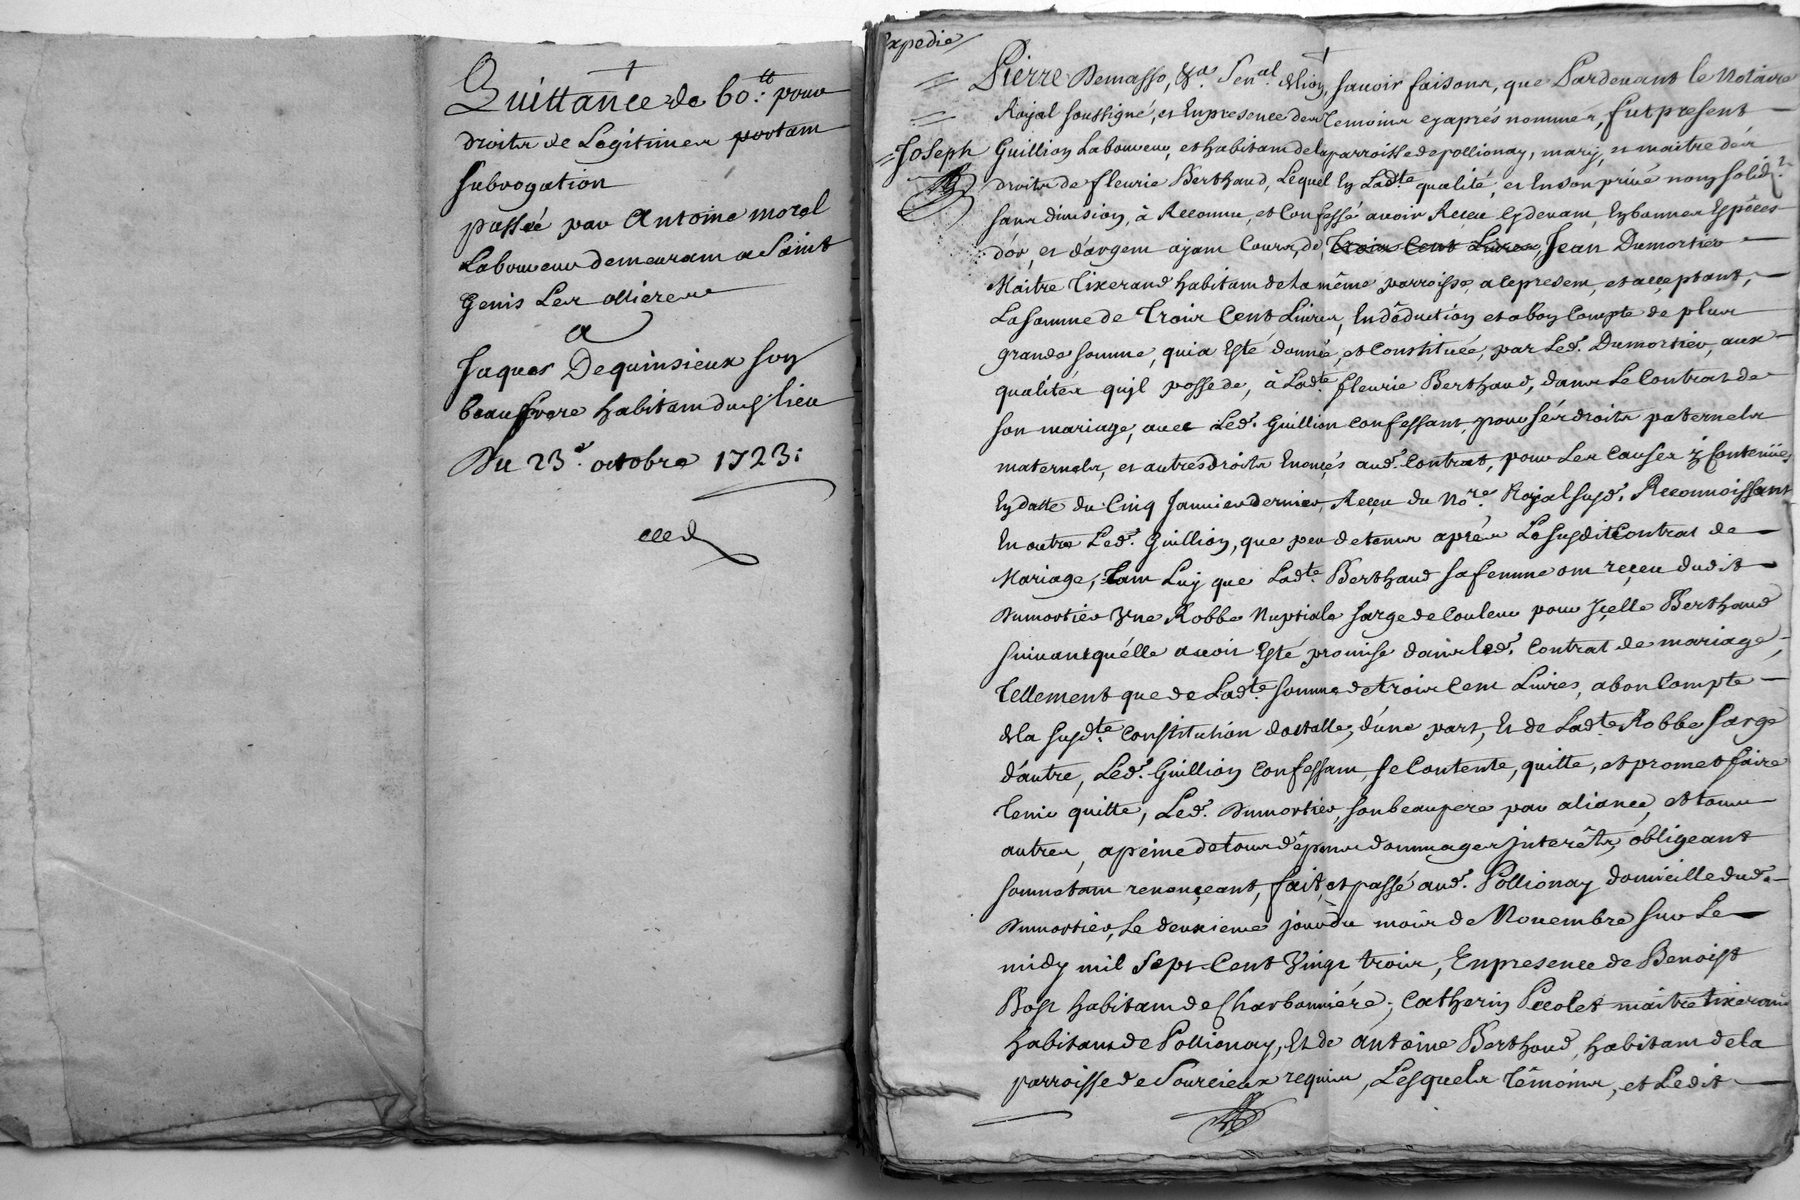 Quittance de 60.tt pour
droits de Légitimes portant
subrogation
passée par Antoine morel
Laboureur demeurant a Saint
Genis Les ollieres
a
Jaques Dequinsieux son
beaufrere habitant dud. lieu
Du 23e. octobre 1723:
Expedié
Pierre Demasso, &a. Sen.al de lion, savoir faisons, que Pardevant le Notaire
Royal soussigné, et En presence des Temoins cy aprés nommés, fut present
Joseph Guillion Laboureur, et habitant de la parroisse de pollionay, mary, et maitre des
droits de fleurie Berthaud, Lequel En Lad.te qualité, et En son privé nom solid.t
sans division, à Reconnu, et Confessé avoir Reçeu cy devant, En bonnes Espéces
d'or, et d'argent ayant Cours, de Trois Cent Livres, Jean Dumortier
Maitre Tixerand habitant de la même parroisse, a ce present, et acçeptant,
La somme de Trois Cent Livres, En déduction et a bon Compte de plus
grande somme, qui a Esté donnée, et Constituée, par Led. Dumortier, aux
qualités qu'jl posse de, à Lad.te fleurie Berthaud, dans Le Contrat de
son mariage, avec Led. Guillion confessant, pour sés droits paternels
maternels, et autres droits Enonçés aud. Contrat, pour Les Causes y Contenües,
En datte du Cinq Janvier dernier, Reçeu du No.re Royal susd. Reconnoissant
En outre Led. Guillion, que peu de tems aprés Le susdit Contrat de
Mariage, Tant Luy que Lad.te Berthaud sa femme ont reçeu dudit
Dumortier Une Robbe Nuptiale sarge de Couleur pour Jçelle Berthaud
suivant qu'élle avoit Esté promise dans led. Contrat de mariage,
Tellement que de Lad.te somme de trois Cent Livres, a bon Compte
de la susd.te Constitution dottalle, d'une part, Et de Lad.te Robbe sarge
d'autre, Led. Guillion Confessant, se Contente, quitte, et promet faire
Tenir quitte, Led. Dumortier, son beaupere par aliance, et tous
autres, a peine de tous dépens dommages jnterêts, obligeant
soumetant renonçeant, fait, et passé aud. Pollionay domicille dud.
Dumortier, Le deuxieme jour du mois de Novembre sur Le
midy mil Sept-Cent Vingt trois, En presence de Benoist
Bost habitant de Charbonniére, Catherin Pecolet maitre tixerand
habitant de Pollionay, Et de antoine Berthoud, habitant de la
parroisse de Sourcieux requis, Lesquels Témoins, et Ledit